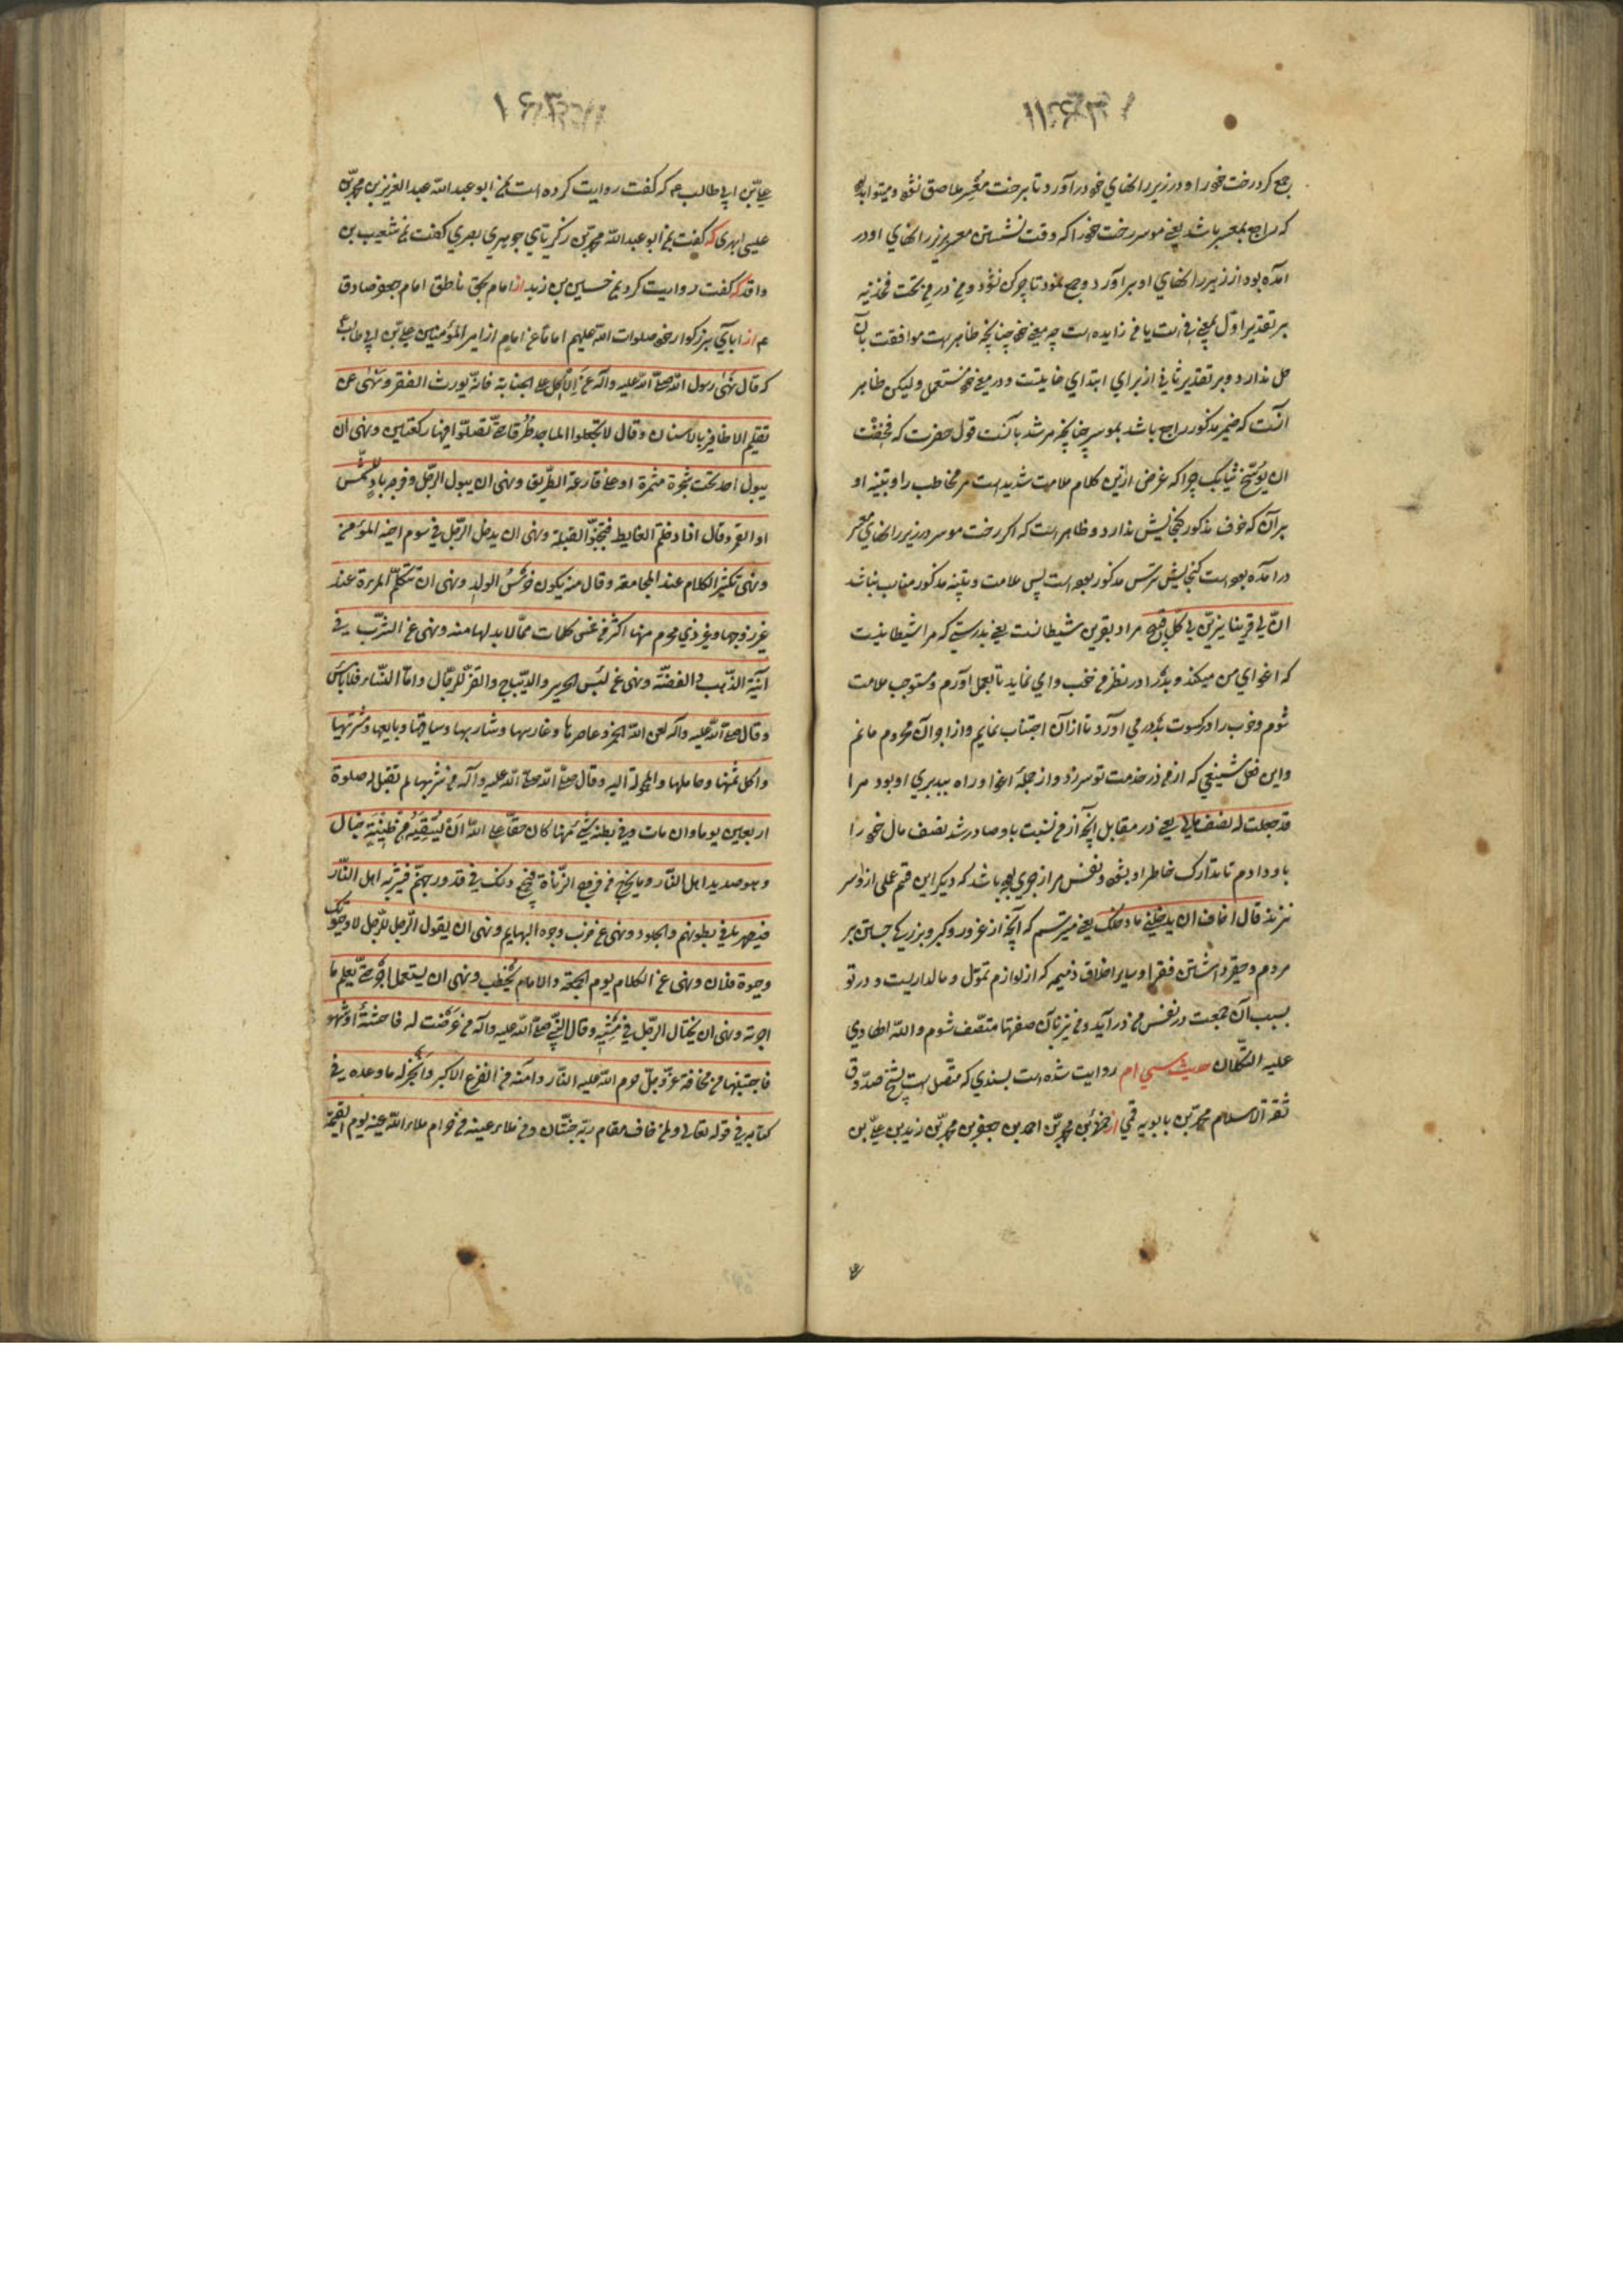 جمع کرد رخت خود را و در زیر رانهای خود درآورد تا برخت معسر ملاصق نشود و میتواند بود
که راجع بمعسر باشد یعنی موسر رخت خود را که وقت نشستن معسر بزیر رانهای او در
آمده بود از زیر رانهای او برآورد و جمع نمود تا چرکن نشود و من در من تحت فخذیه
بر تقدیر اول بمعنی فی است یا من زایده است چه معنی خود چنانچه ظاهر است موافقت بآن
حل ندارد و بر تقدیر ثانی از برای ابتدای غایتست و در معنی خود مستعمل ولیکن ظاهر
آنست که ضمیر مذکور راجع باشد بموسر چنانچه مرشد بآنست قول حضرت که فخفت
ان یوسخ ثیابک چرا که غرض ازین کلام ملامت شدید است مر مخاطب را و تنبیه او
بر آن که خوف مذکور گنجایش ندارد و ظاهر است که اگر رخت موسر در زیر رانهای معسر
درآمده بوده است گنجایش ترس مذکور بوده است پس ملامت و تنبیه مذکور مناسب نباشد
ان لی قرینا یزین لی کل قبیح مراد بقرین شیطانست یعنی بدرستی که مرا شیطانیست
که اغوای من میکند و بد را در نظر من خوب وا می نماید تا بعمل آورم و مستوجب ملامت
شوم و خوب را در کسوت بد در می آورد تا از آن اجتناب نمایم و از ثواب آن محروم مانم
و این فعل شنیعی که از من در خدمت تو سر زد و از جمله اغوا و راه بیدبری او بود مرا
قد جعلت له نصف مالی یعنی در مقابل آنچه از من نسبت باو صادر شد نصف مال خود را
باو دادم تا تدارک خاطر او بشود و نفس مرا زجری بوده باشد که دیگر این قسم عملی ازو سر
نزند قال اخاف ان یدخلنی ما دخلک یعنی میترسم که آنچه از غرور و کبر و بزرگی جستن بر
مردم و حقیر داشتن فقرا و سایر اخلاق ذمیمه که از لوازم تمول و مالداریست و در تو
بسبب آن جمعت در نفس من درآید و من نیز بآن صفتها متصف شوم والله الهادی
علیه التکلان حدیث سی ام روایت شده است بسندی که متصل است بشیخ صدوق
ثقة الاسلام محمد بن بابویه قمی از حمزة بن محمد بن احمد بن جعفر بن محمد بن زید بن علی بن
علی بن ابی طالب ع م که گفت روایت کرده است مرا ابو عبدالله عبد العزیز بن محمد بن
عیسی ابهری که گفت مرا ابو عبدالله محمد بن زکریای جوهری بصری گفت مرا شعیب بن
واقد که گفت روایت کرد مرا حسین بن زید از امام بحق ناطق امام جعفر صادق
ع م از آبای بزرگوار خود صلوات الله علیهم اماما عن امام از امیر المؤمنین علی بن ابی طالب ع
که قال نهی رسول الله صلی الله علیه وآله عن الاکل علی الجنابة فانه یورث الفقر و نهی عن
تقلیم الاظافیر بالاسنان و قال لا تجعلوا المساجد طرقا حتی تصلوا فیها رکعتین و نهی ان
یبول احد تحت شجرة مثمرة او علی قارعة الطریق و نهی ان یبول الرجل و فرجه باد للشمس
او القمر و قال اذا دخلتم الغایط فتجنبوا القبلة و نهی ان یدخل الرجل فی سوم اخیه المؤمن
و نهی تکثیر الکلام عند المجامعة و قال منه یکون خرس الولد و نهی ان تتکلم المرءة عند
غیر زوجها و غیر ذی محرم منها اکثر من خمس کلمات مما لا بد لها منه و نهی عن الشرب فی
آنیة الذهب و الفضة و نهی عن لبس الحریر و الدیباج و القز للرجال و اما النساء فلا باس
و قال صلی الله علیه وآله لعن الله الخمر و عاصرها و غارسها و شاربها و ساقیها و بایعها و مشتریها
و اکل ثمنها و حاملها و المحمولة الیه و قال صلی الله علیه وآله من شربها لم تقبل له صلوة
اربعین یوما و ان مات و فی بطنه شیء منها کان حقا علی الله ان یسقیه من طینة خبال
و هو صدید اهل النار و ما یخرج من فروج الزناة فیجتمع ذلک فی قدور جهنم فیشربه اهل النار
فیصهر به ما فی بطونهم و الجلود و نهی عن ضرب وجوه البهایم و نهی ان یقول الرجل للرجل لا و حیوتک
و حیوة فلان و نهی عن الکلام یوم الجمعة و الامام یخطب و نهی ان یستعمل اجیر حتی یعلم ما
اجرته و نهی ان یختال الرجل فی مشیه و قال النبی صلی الله علیه وآله من عرضت له فاحشة او شهوة
فاجتنبها من مخافة عز وجل حرم الله علیه النار و آمنه من الفزع الاکبر و انجز له ما وعده فی
کتابه فی قوله تعالی و لمن خاف مقام ربه جنتان و من ملاء عینه من حرام ملاء الله عینه یوم القیمة